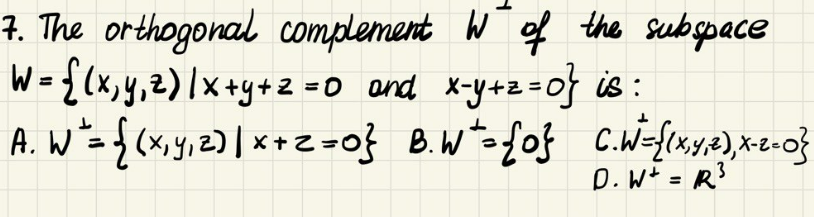 7. The orthogonal complement W⊥ of the subspace
W = {(x,y,z) | x+y+z=0 and x-y+z=0} is :
A. W⊥ = {(x,y,z) | x+z=0} B. W⊥={0} C. W⊥={(x,y,z), x-z=0}
D. W⊥ = R³